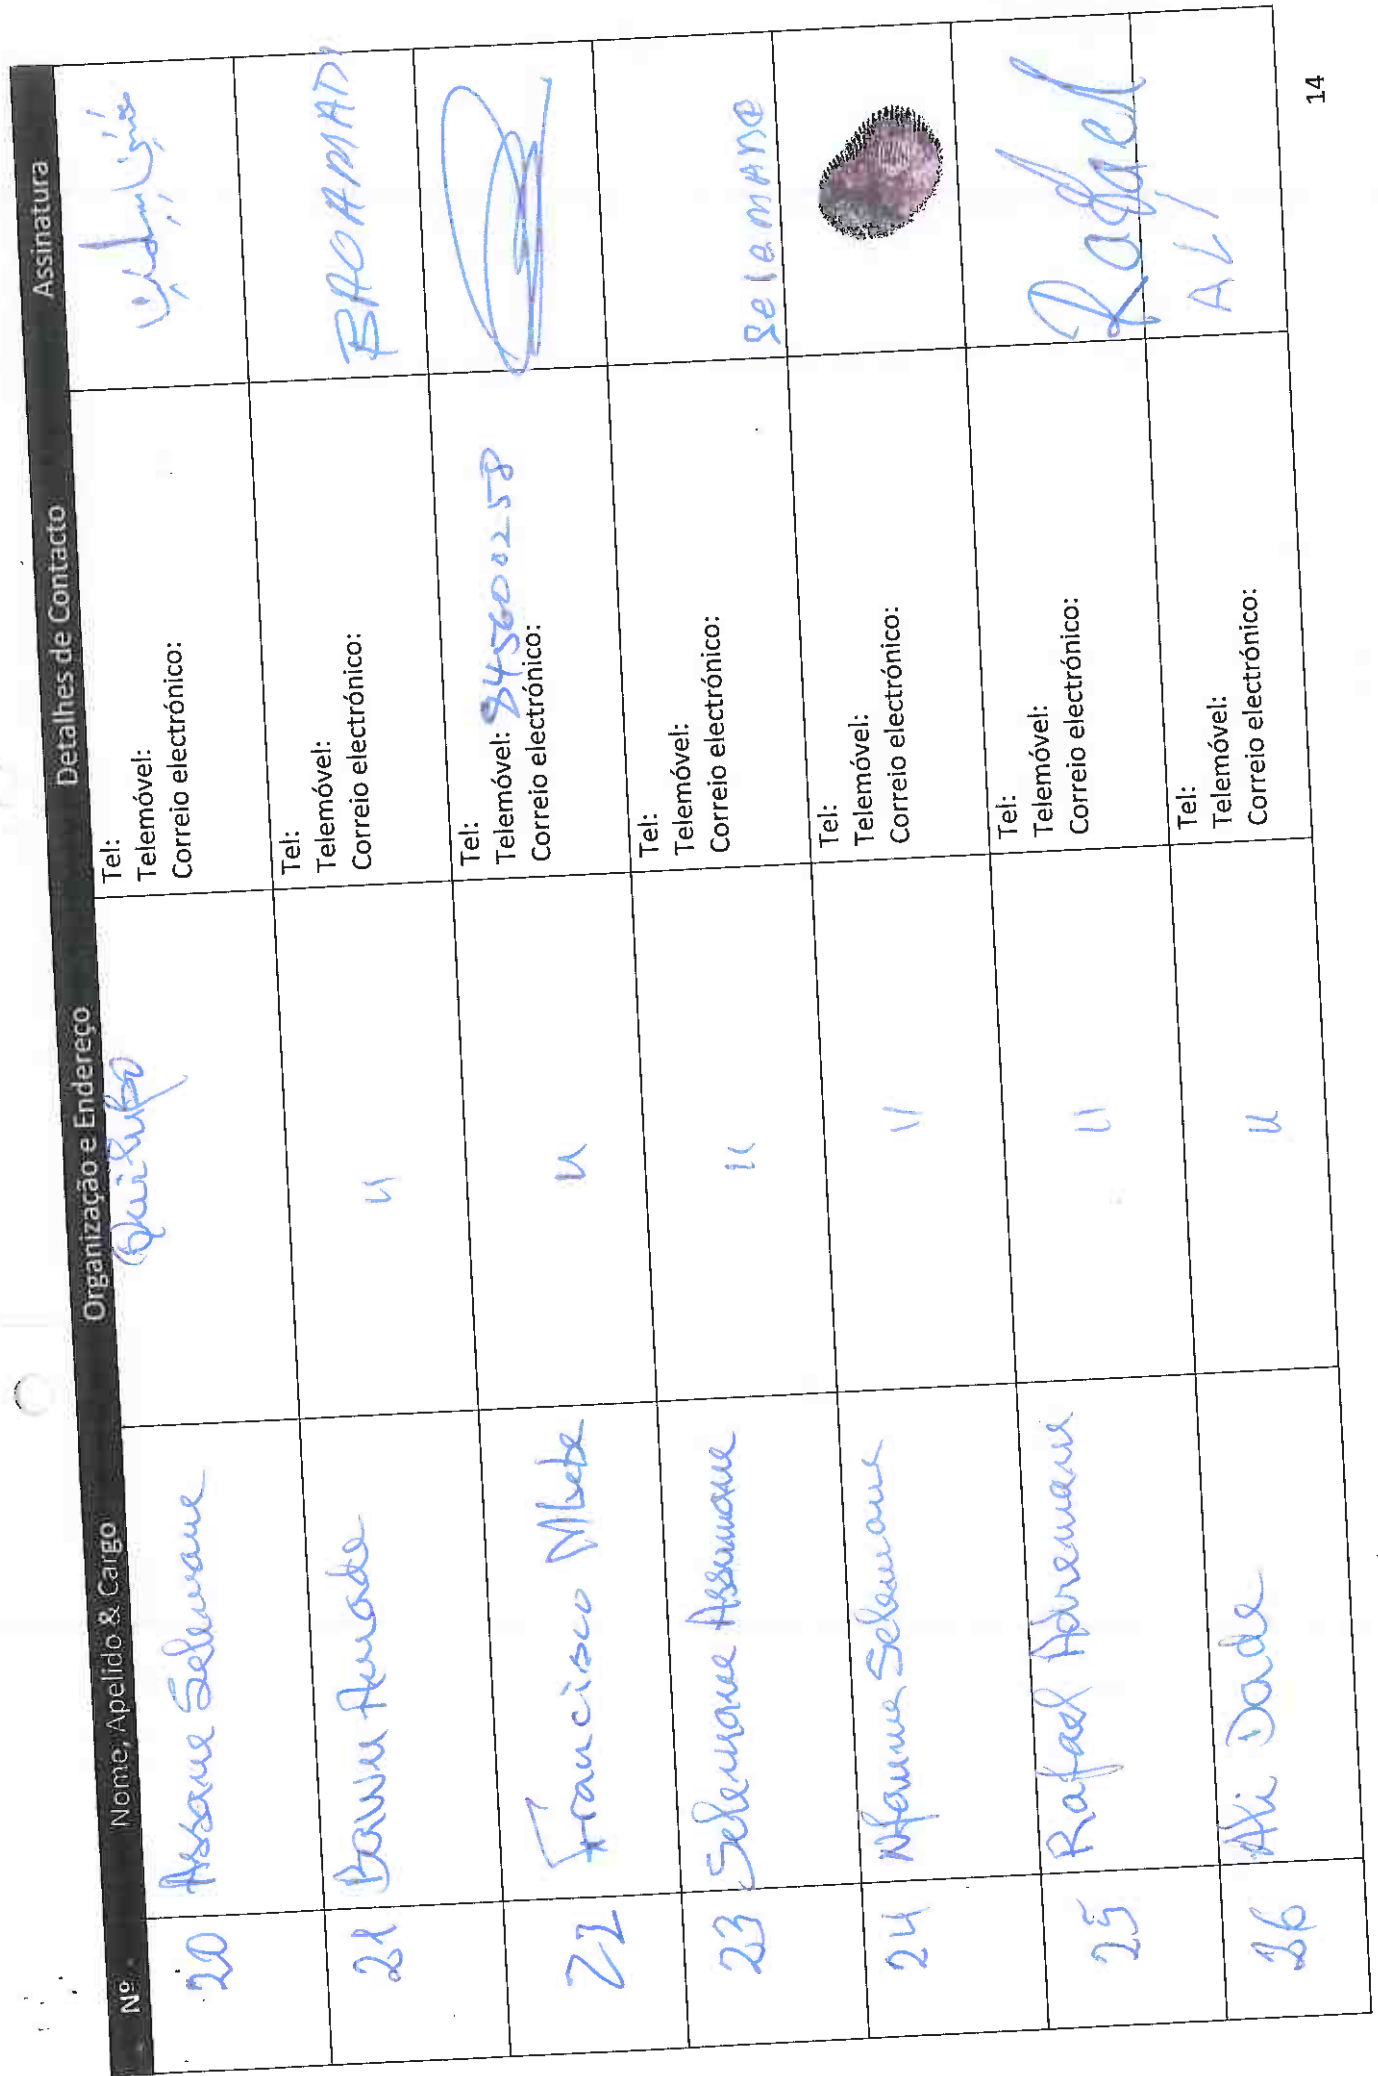 Nº Nome, Apelido & Cargo Organização e Endereço Detalhes de Contacto Assinatura
20 Assane Selemane
Tel:
Telemóvel:
Correio electrónico:
21 Amade
"
Tel:
Telemóvel:
Correio electrónico:
22 Francisco
"
Tel:
Telemóvel: 845600258
Correio electrónico:
23 Selemane Assumane
"
Tel:
Telemóvel:
Correio electrónico:
Selemane
24 Selemane
"
Tel:
Telemóvel:
Correio electrónico:
25 Rafael Adremane
"
Tel:
Telemóvel:
Correio electrónico:
Rafael
26 Ali Dade
"
Tel:
Telemóvel:
Correio electrónico:
ALI
14